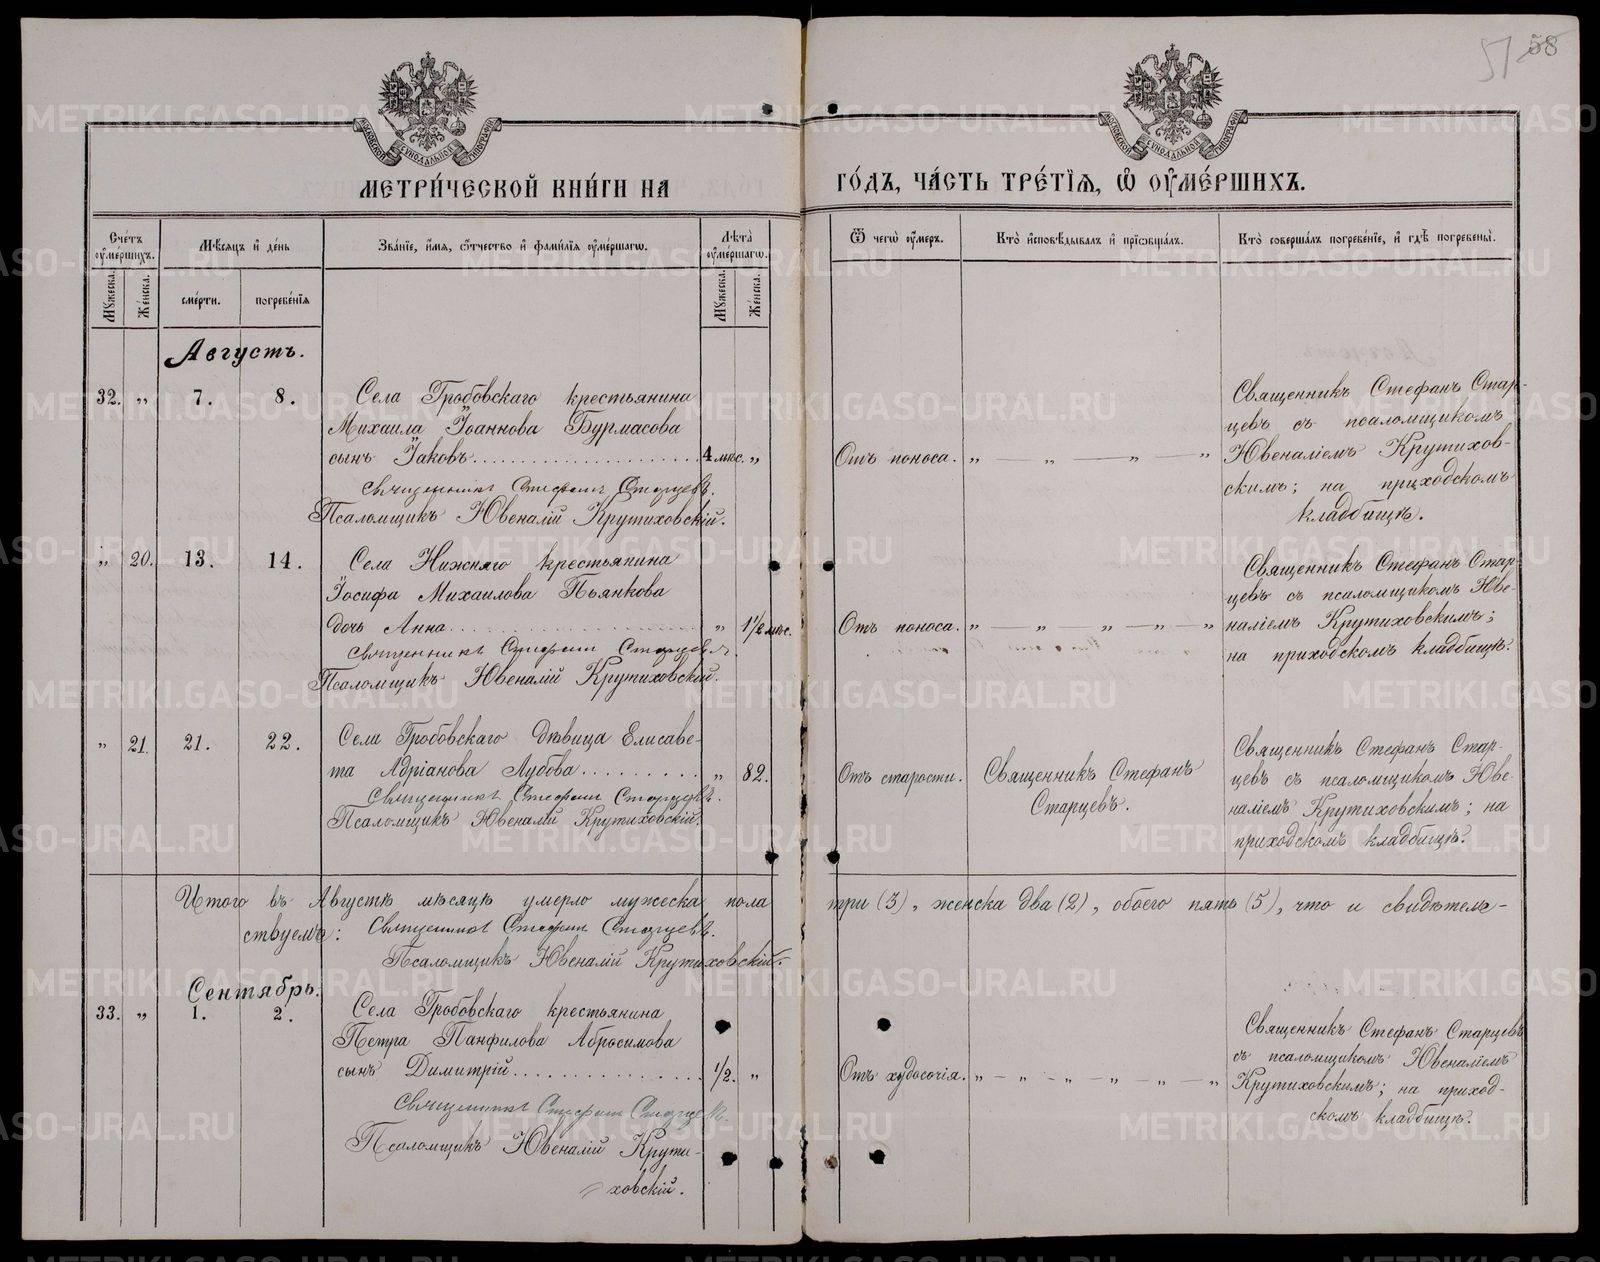 57 58
МОСКОВСКОЙ СУНОДАЛЬНОЙ ТИПОГРАФІИ
МОСКОВСКОЙ СУНОДАЛЬНОЙ ТИПОГРАФІИ
МЕТРИ́ЧЕСКОЙ КНИ́ГИ НА
ГО́ДЪ, ЧА́СТЬ ТРЕ́ТІѦ, Ѽ ОУМЕ́РШИХЪ.
Сче́тъ оуме́ршихъ.
Мꙋжеска.
Же́нска.
Мѣ́сяцъ и де́нь
сме́рти.
погребе́нїѧ
Зва́нїе, и́мѧ, ѻ́тчество и фами́лїѧ оуме́ршагѡ.
Лѣ́та оуме́ршагѡ.
Мꙋжеска.
Же́нска.
Ѿ чегѡ̀ оу́меръ.
Кто̀ и҆сповѣ́дывалъ и҆ прїѡбща́лъ.
Кто̀ соверша́лъ погребе́нїе, и҆ гдѣ̀ погребены̀.
Августъ.
32. „ 7. 8. Села Гробовскаго крестьянина
Михаила Іоаннова Бурмасова
сынъ Іаковъ 4 мѣс. „ Отъ поноса. „ — „ — „ — „
Священникъ Стефанъ Старцевъ.
Псаломщикъ Ювеналій Крутиховскій.
Священникъ Стефанъ Стар-
цевъ съ псаломщикомъ
Ювеналіемъ Крутихов-
скимъ; на приходскомъ
кладбищѣ.
„ 20. 13. 14. Села Нижняго крестьянина
Іосифа Михаилова Пьянкова
дочь Анна „ 1 1/2 мѣс. Отъ поноса. „ — „ — „ — „ — „
Священникъ Стефанъ Старцевъ.
Псаломщикъ Ювеналій Крутиховскій.
Священникъ Стефанъ Стар-
цевъ съ псаломщикомъ Юве-
наліемъ Крутиховскимъ;
на приходскомъ кладбищѣ.
„ 21. 21. 22. Села Гробовскаго дѣвица Елисаве-
та Адріанова Лубова „ 82. Отъ старости. Священникъ Стефанъ
Старцевъ.
Священникъ Стефанъ Старцевъ.
Псаломщикъ Ювеналій Крутиховскій.
Священникъ Стефанъ Стар-
цевъ съ псаломщикомъ Юве-
наліемъ Крутиховскимъ; на
приходскомъ кладбищѣ.
Итого въ Августѣ мѣсяцѣ умерло мужеска пола три (3), женска два (2), обоего пять (5), что и свидѣтель-
ствуемъ: Священникъ Стефанъ Старцевъ.
Псаломщикъ Ювеналій Крутиховскій.
Сентябрь.
33. „ 1. 2. Села Гробовскаго крестьянина
Петра Панфилова Абросимова
сынъ Димитрій 1/2. „ Отъ худосочія. „ — „ — „ — „ — „ — „
Священникъ Стефанъ Старцевъ.
Псаломщикъ Ювеналій Крути-
ховскій.
Священникъ Стефанъ Старцевъ
съ псаломщикомъ Ювеналіемъ
Крутиховскимъ; на приход-
скомъ кладбищѣ.
METRIKI.GASO-URAL.RU